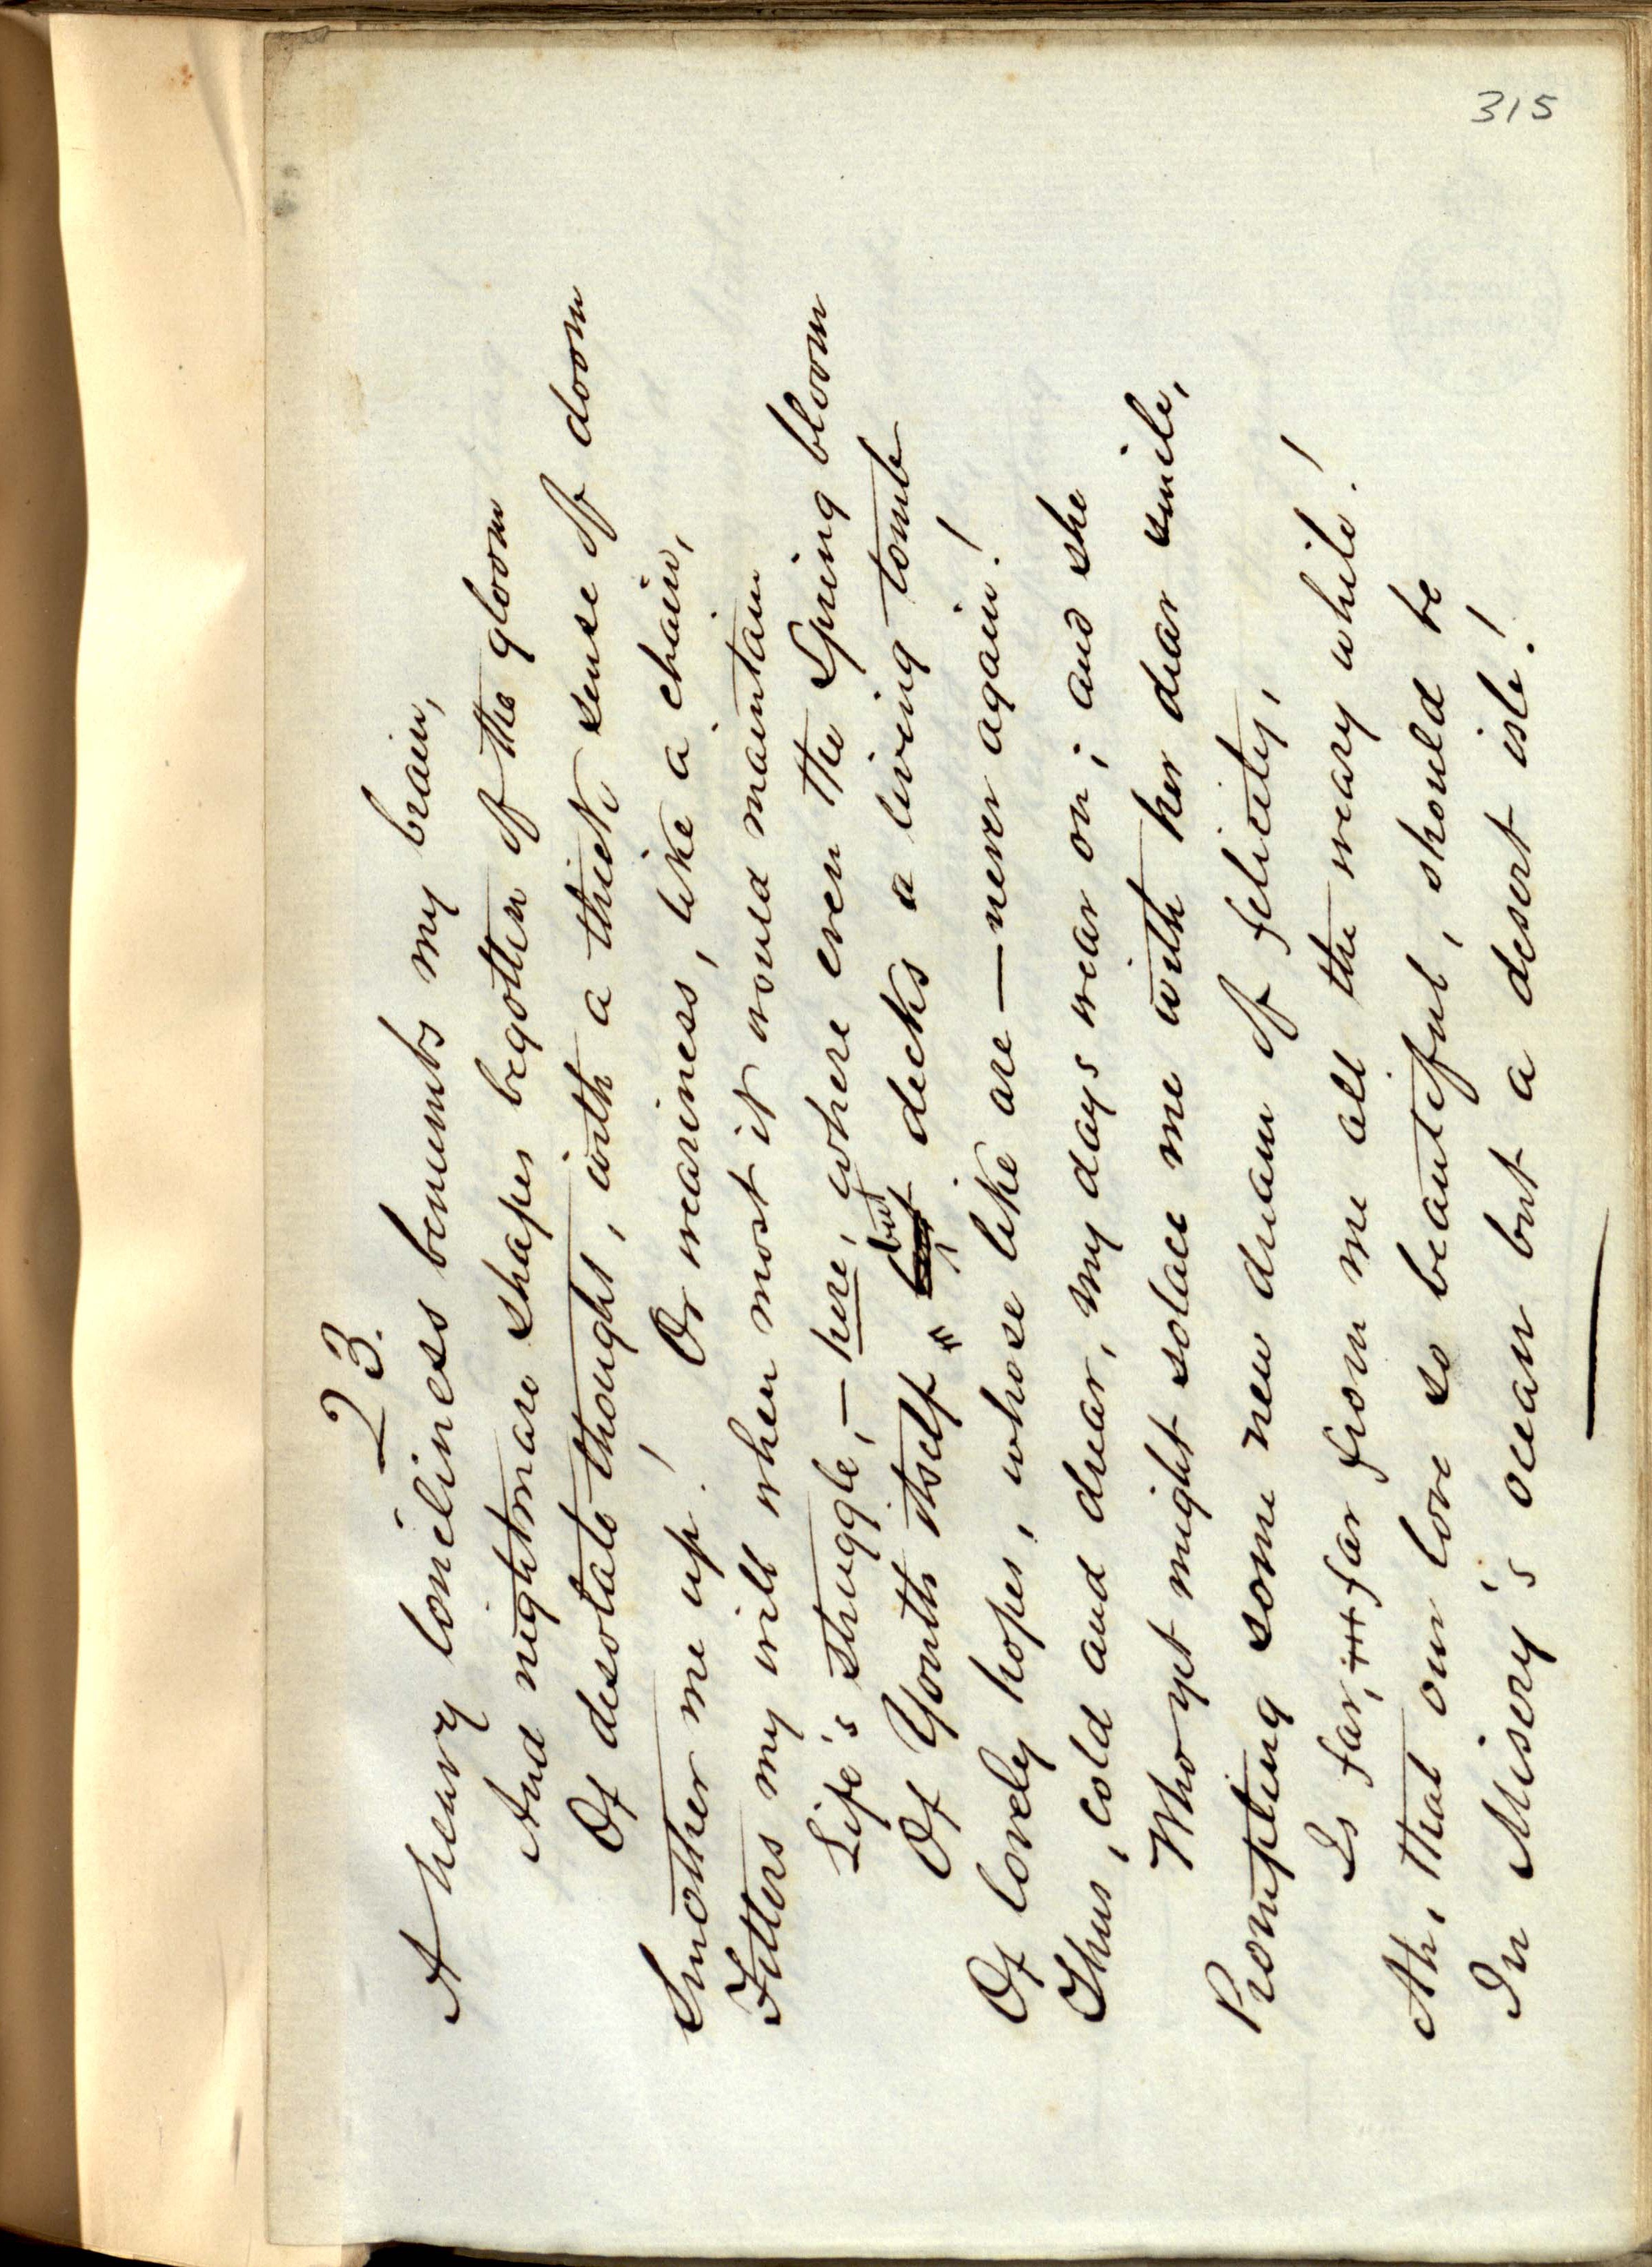 315
23.
A heavy loneliness benumbs my brain,
And nightmare shapes begotten of the gloom
Of desolate thought, with a thick sense of doom
Smother me up! Or weariness, like a chain,
Fetters my will when most it would maintain
Life's struggle,—here, where even the Spring bloom
Of Youth itself but decks a living tomb
Of lovely hopes, whose like are—never again!
Thus, cold and drear, my days wear on; and she
Who yet might solace me with her dear smile,
Prompting some new dream of felicity,
Is far, far from me all the weary while!
Ah, that our love so beautiful, should be
In Misery's ocean but a desert isle!